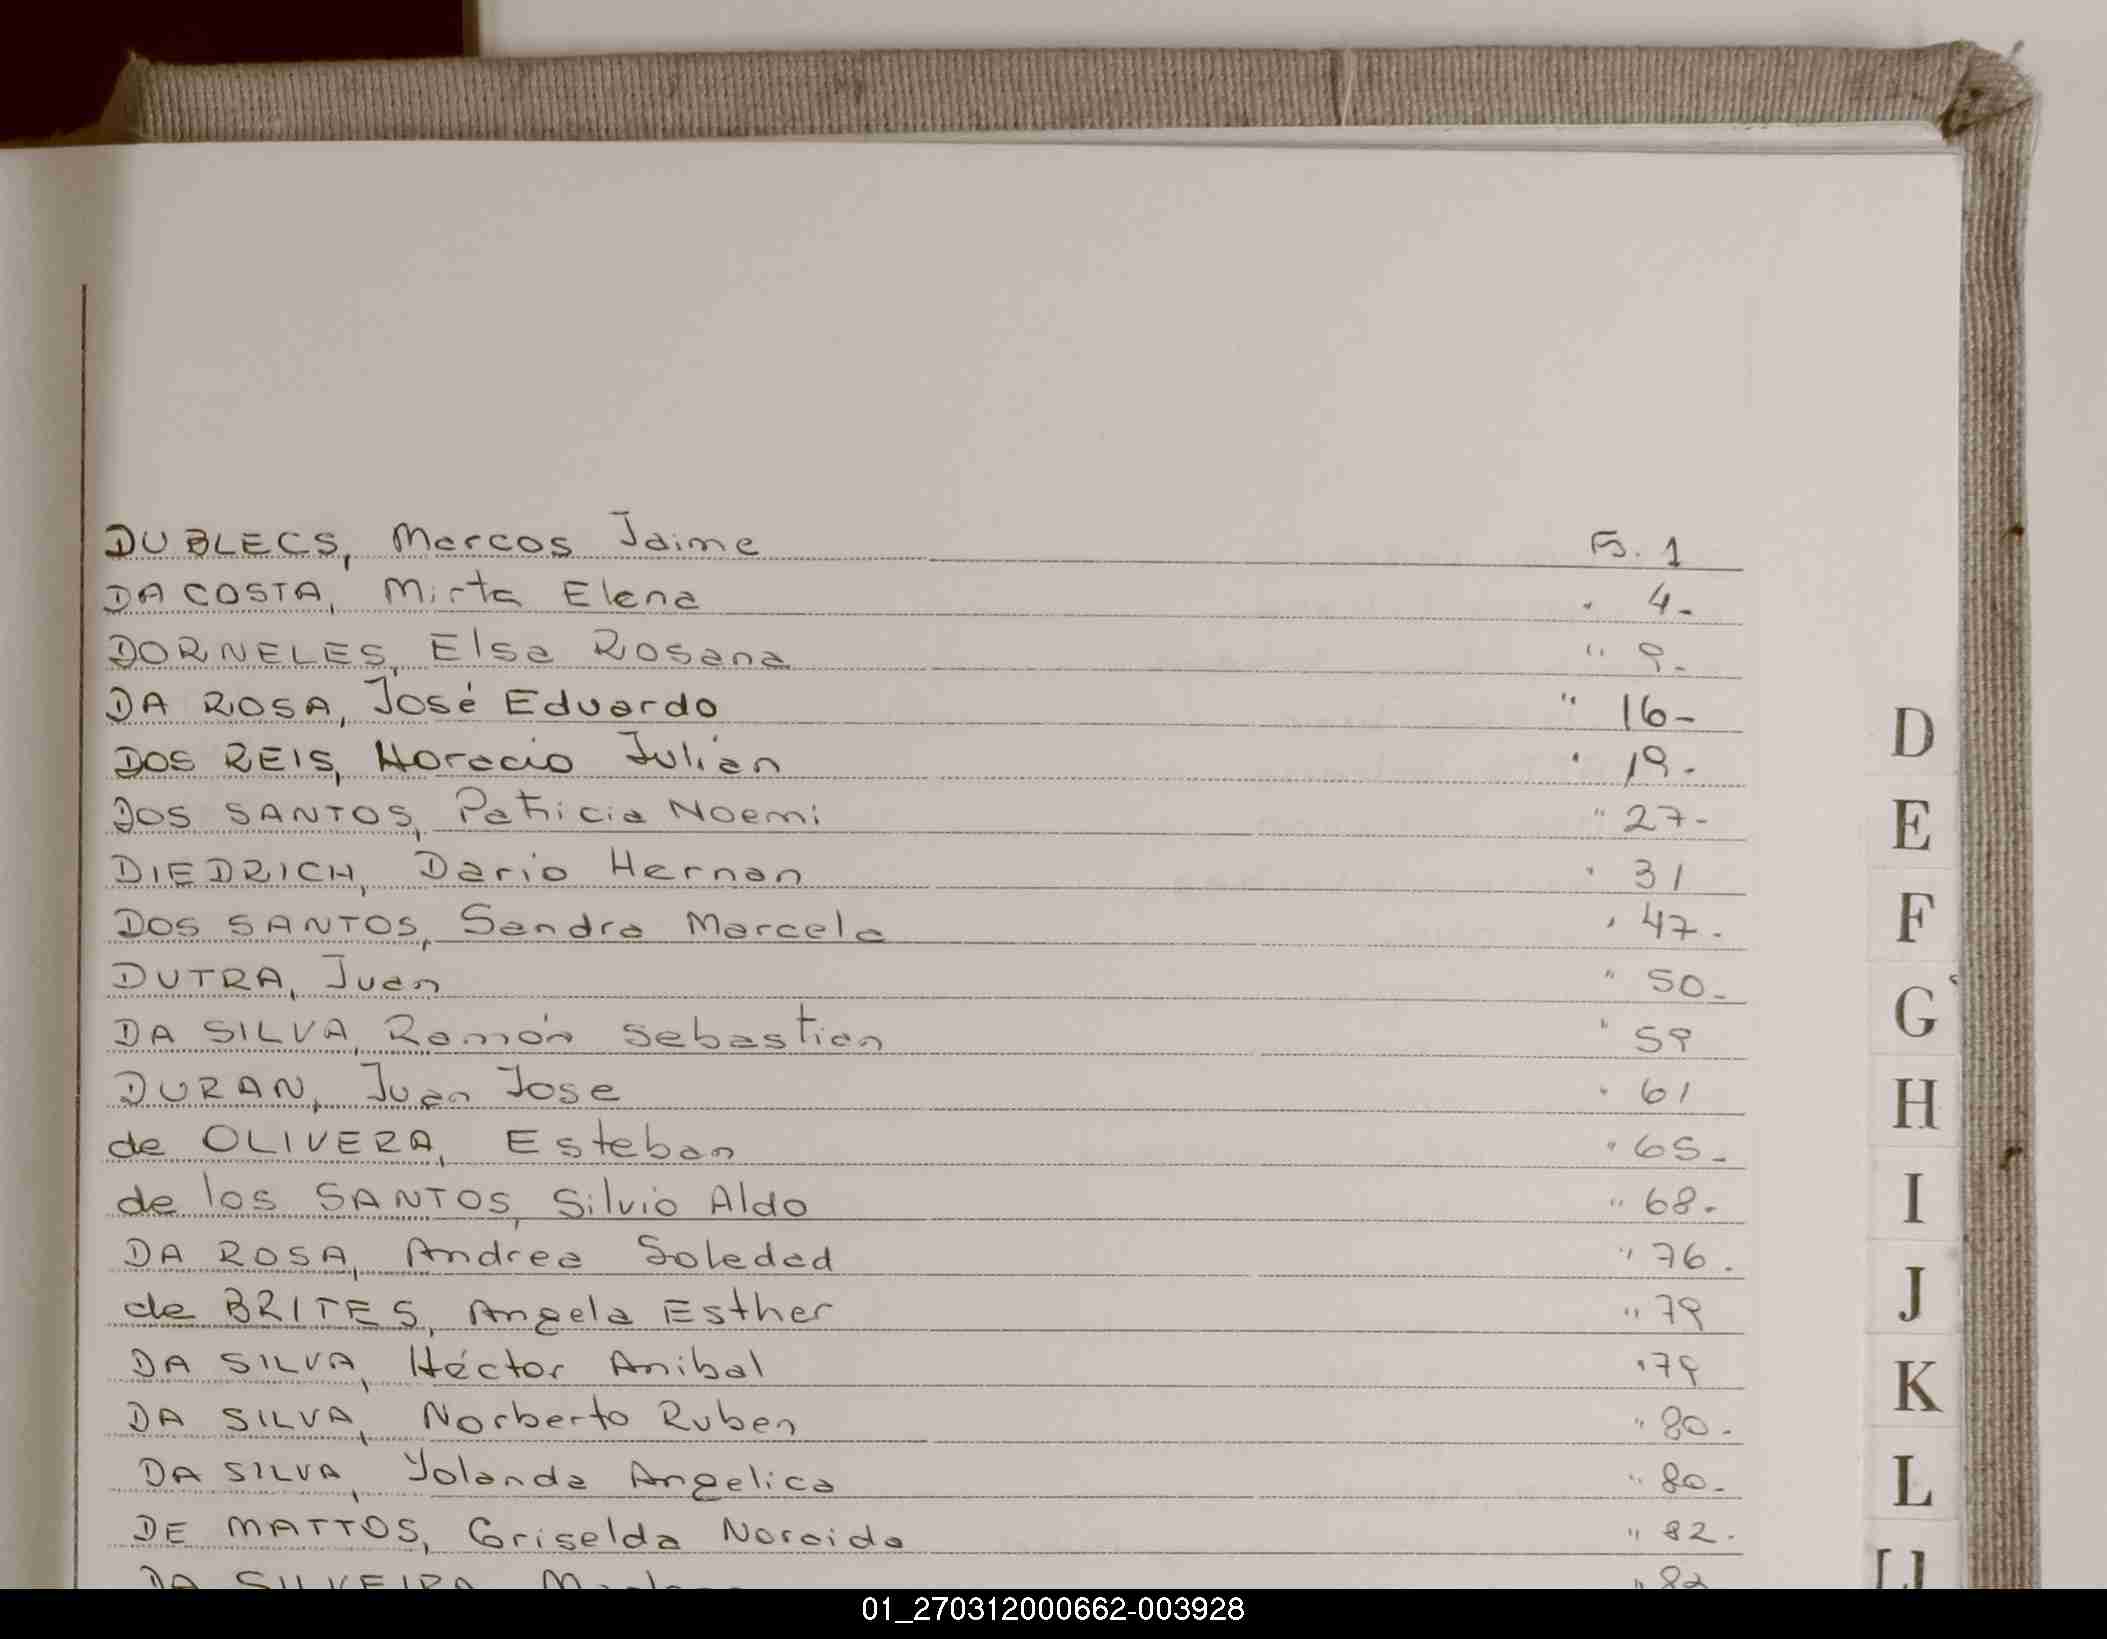 DUBLECS, Marcos Jaime Fs. 1
DA COSTA, Mirta Elena " 4-
DORNELES, Elsa Rosana " 9-
DA ROSA, José Eduardo " 16-
DOS REIS, Horacio Julián " 19-
DOS SANTOS, Patricia Noemi " 27-
DIEDRICH, Dario Hernan " 31
DOS SANTOS, Sandra Marcela " 47-
DUTRA, Juan " 50-
DA SILVA, Ramón Sebastian " 59
DURAN, Juan Jose " 61
de OLIVERA, Esteban " 65-
de los SANTOS, Silvio Aldo " 68-
DA ROSA, Andrea Soledad " 76.
de BRITES, Angela Esther " 79
DA SILVA, Héctor Anibal " 79
DA SILVA, Norberto Ruben " 80-
DA SILVA, Yolanda Angelica " 80-
DE MATTOS, Griselda Noraida " 82-
DA SILVEIRA
D
E
F
G
H
I
J
K
L
01_270312000662-003928